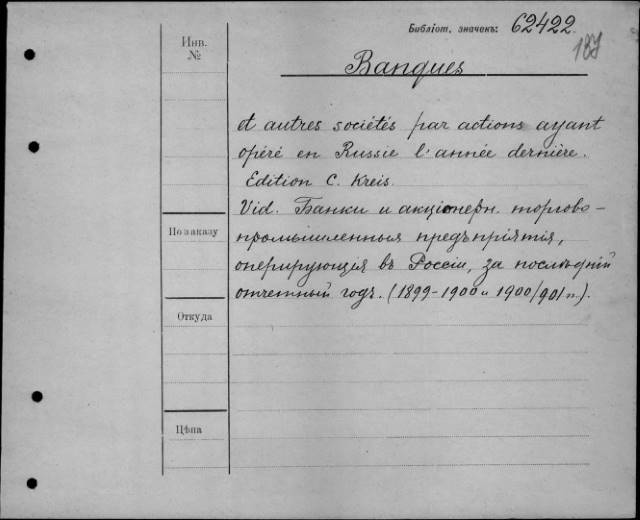 Библіот. значекъ: 62422.
187
Инв.
№
Banques
et autres sociétés par actions ayant
opéré en Russie l'année dernière.
Edition C. Kreis.
Vid. Банки и акціонерн. торгово-
промышленныя предпріятія,
По заказу
оперирующія въ Россіи, за послѣдній
отчетный годъ. (1899-1900 и 1900/901 г.).
Откуда
Цѣна